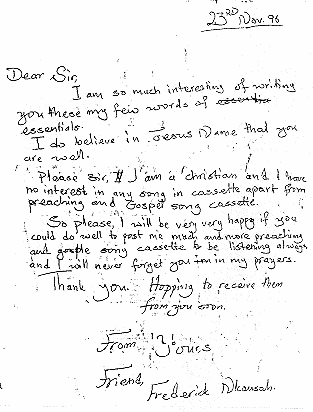 23RD Nov. 96
Dear Sir,
I am so much interesting of writing
you these my few words of essentia
essentials.
I do believe in Jesus Name that you
are well.
Please Sir, I am a christian and I have
no interest in any song in cassette apart from
preaching and Gospel song cassette.
So please, I will be very very happy if you
could do well to post me much and more preaching
and gosple song cassette to be listening always
and I will never forget you in my prayers.
Thank you. Hopping to receive them
from you soon.
From Yours
Friend,
Frederick Nkansah.